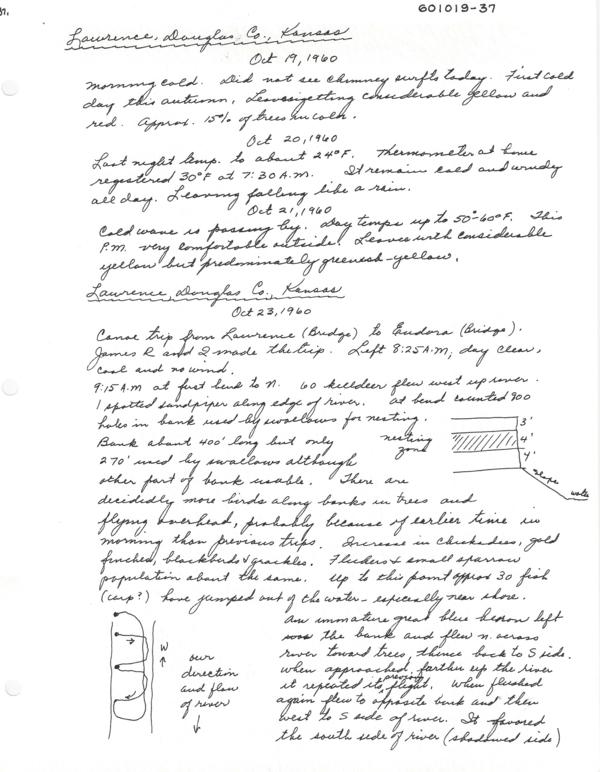 37.
601019-37
Lawrence, Douglas Co., Kansas
Oct 19, 1960
Morning cold. Did not see chimney swifts today. First cold
day this autumn. Leaves getting considerable yellow and
red. Approx. 15% of trees in color.
Oct 20, 1960
Last night temp. to about 24°F. Thermometer at home
registered 30°F at 7:30 A.M. It remain cold and windy
all day. Leaving falling like a rain.
Oct 21, 1960
Cold wave is passing by. Day temps up to 50°-60°F. This
P.M. very comfortable outside. Leaves with considerable
yellow but predominately greenish-yellow.
Lawrence, Douglas Co., Kansas
Oct 23, 1960
Canoe trip from Lawrence (Bridge) to Eudora (Bridge).
James R and I made the trip. Left 8:25 A.M; day clear,
cool and no wind.
9:15 A.M at first bend to N. 60 killdeer flew west up river.
1 spotted sandpiper along edge of river. At bend counted 900
holes in bank used by swallows for nesting.
Bank about 400' long but only
270' used by swallows although
other part of bank usable. There are
nesting
zone
3'
4'
4'
slope
water
decidedly more birds along banks in trees and
flying overhead, probably because of earlier time in
morning than previous trips. Increase in chickadees, gold
finches, blackbirds & grackles. Flickers & small sparrow
population about the same. Up to this point approx 30 fish
(carp?) have jumped out of the water - especially near shore.
An immature great blue heron left
was the bank and flew n. across
river toward trees, thence back to S side.
When approached, farther up the river
it repeated its previous flight. When flushed
again flew to opposite bank and then
west to S side of river. It favored
the south side of river (shadowed side)
W
our
direction
and flow
of river